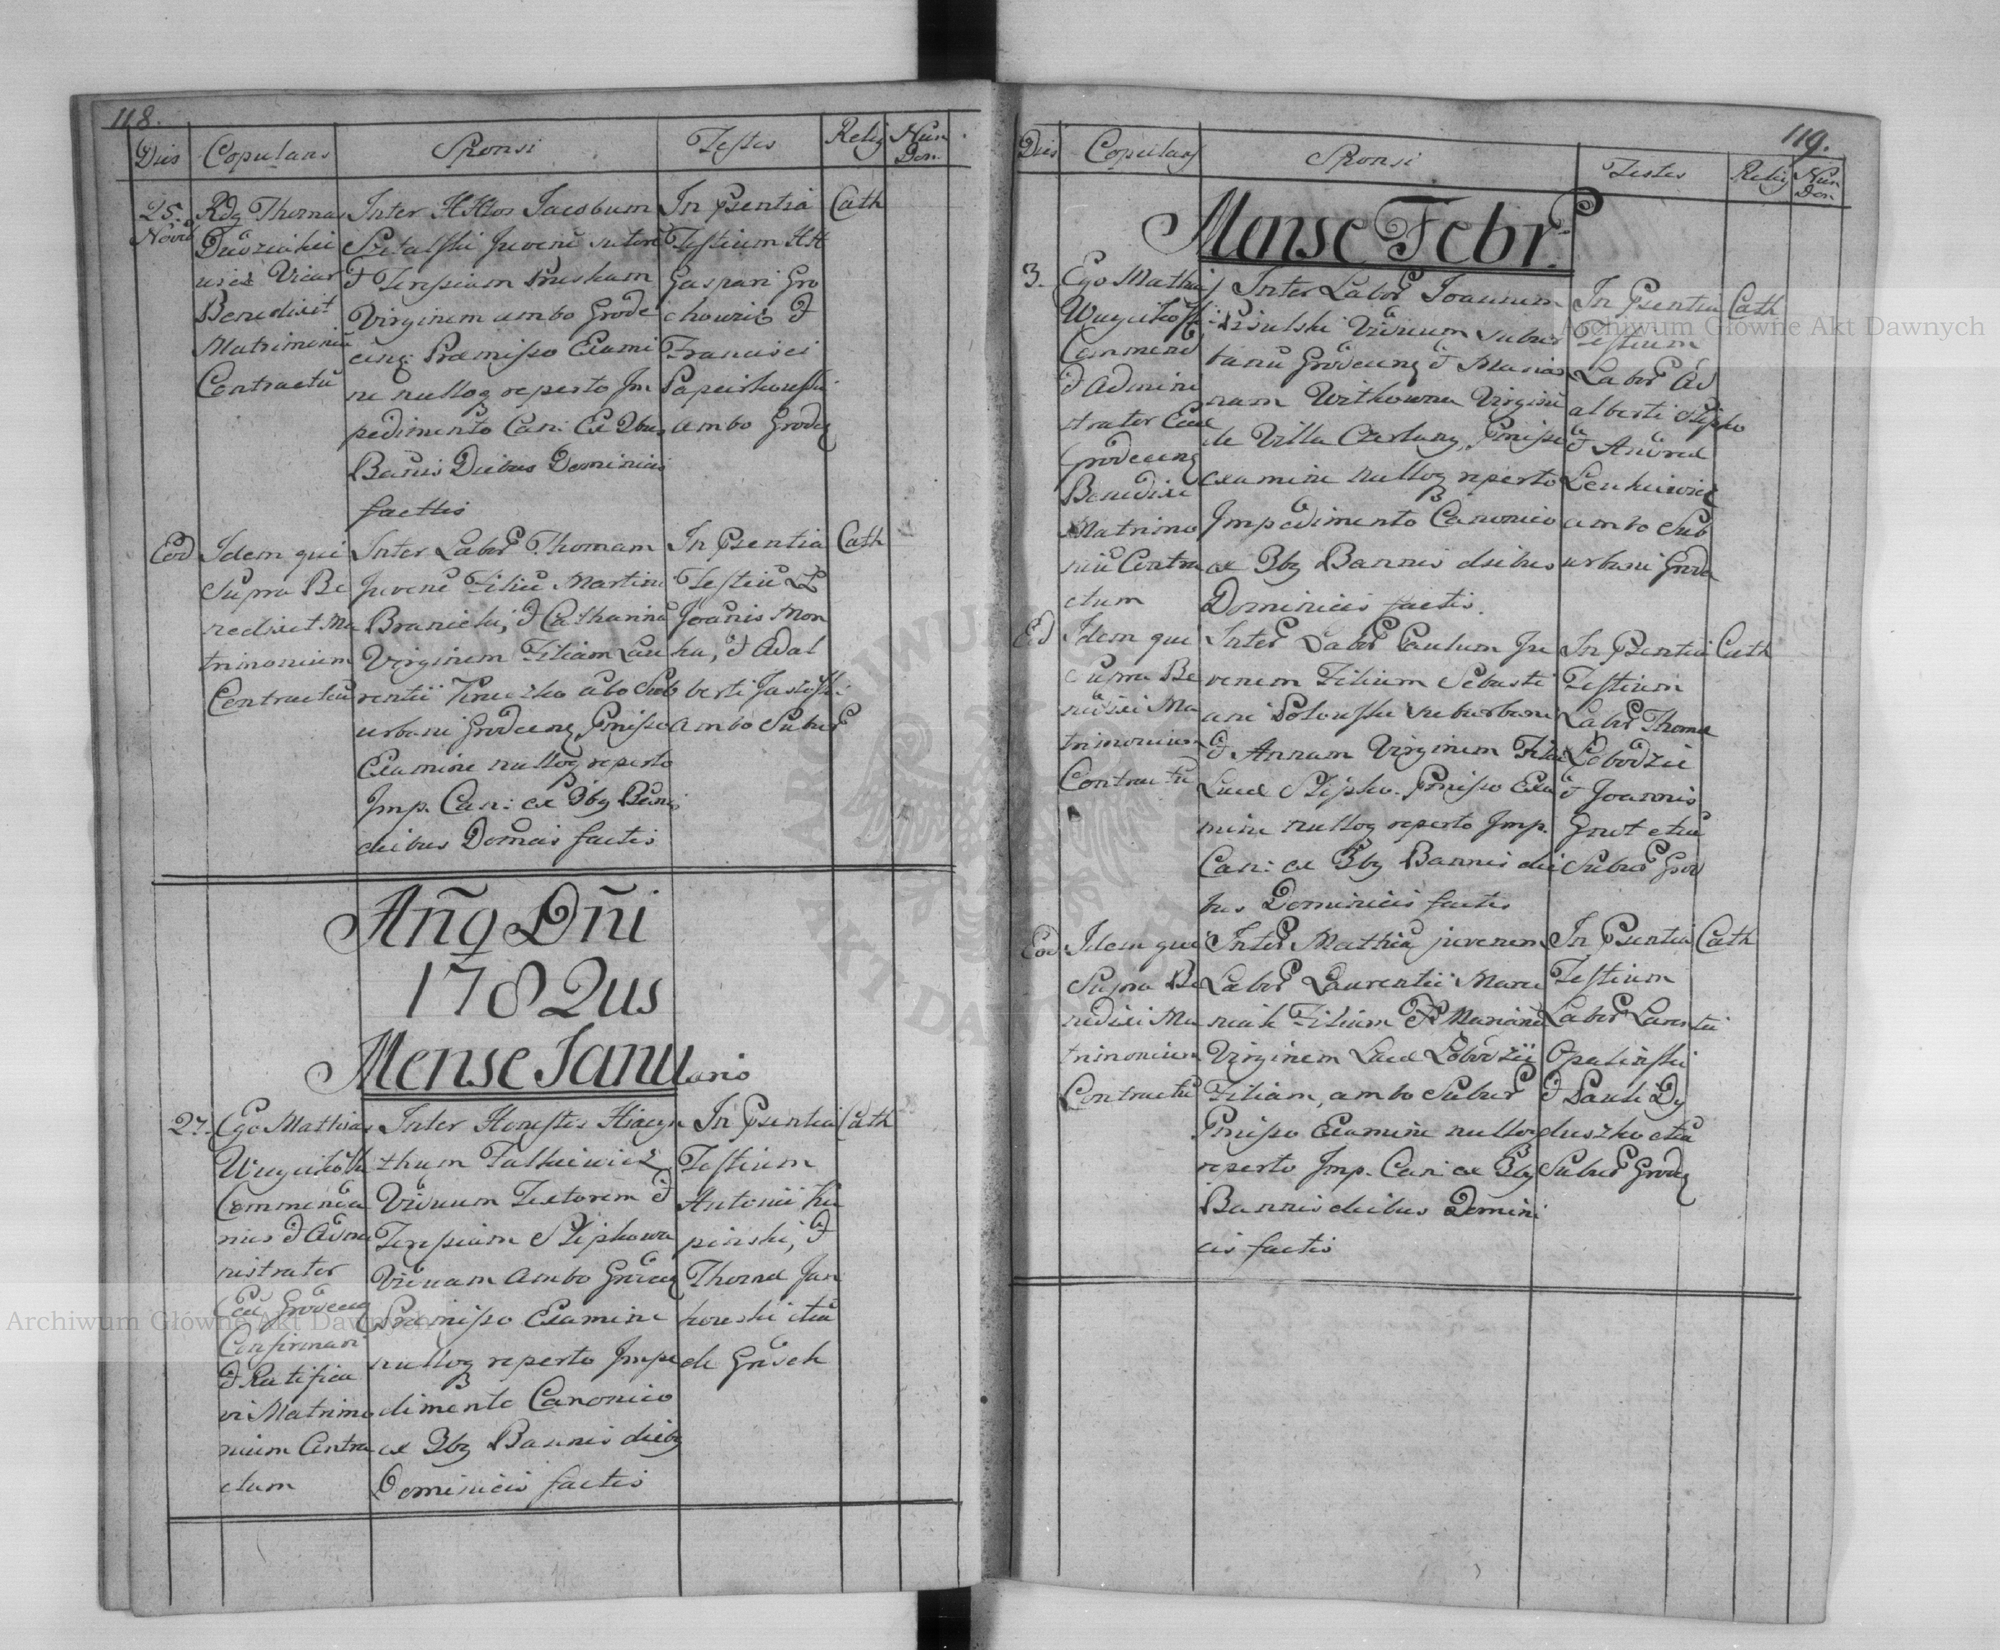 118.
Dies Copulans Sponsi Testes Relig Num Dom.
25. Novb
Rdg Thomas
nus Vicar
Benedixit
Matrimoniu
Contractu
Inter HHtos Jacobum
Szitalski Juvenē sutorē
Virginem ambo Grode
ceng. Præmisso Exami
ne nulloq reperto Im
pedimento Can: Ex 3bus
Banis Diebus Dominicis
factis
In Psentia
Testium HH
Gaspari Gro
chowicz &
Francisci
ambo Grodeg
Cath
Eod
Idem qui
Supra Be
nedixit Ma
trimonium
Contractu
Inter Labor Thomam
Juvenē Filiū Martini
Branicki, & Catharinā
Virginem Filiam Lau
rentii Kruczko abo Sub
urbani Grodceng Pmisso
Examine nulloq reperto
Imp. Can: ex 3bq Banis
diebus Domcis factis
In Psentia
Testiū L
Joānis Mon
ka, & Adal
berti Jasiski
ambo Subur
Cath
Añq Dñi
1782dus
Mense Januario
27.
Ego Mathias
Commenda
rius & Admi
nistrator
Ecc Grodceng
Confirmavi
& Ratifica
vi Matrimo
nium Contra
ctum
Inter Honestos Hiacyn
thum Falkiewicz
Viduum Textorem &
Teresiam Slipkowa
Viduam ambo Grodceg
Præmisso Examine
nulloq reperto Impe
dimento Canonico
ex 3bq Bannis diebq
Dominicis factis
In Psentia
Testium
Antonii Ku
pinski, &
Thomæ Jan
kowski etiā
de Grodek
Cath
119.
Dies Copulans Sponsi Testes Relig Num Dom
Mense Febr.
3.
Ego Mathias
Commend
& Admini
strator Eccl
Grodceng
Benedixi
Matrimo
niū Contra
ctum
Inter Labor Joannem
Pisulski Viduum subur
banū Grodceng & Marian
nam Witkowna Virginē
de Villa Czerlany, Pmisso
examine nulloq reperto
Impedimento Canonico
ex 3bq Bannis diebus
Dominicis factis.
In Psentia
Testium
Labor Ad
alberti Slipko
& Andreæ
Lenkiewicz
ambo Sub
urbani Grode
Cath
Ed
Idem qui
supra Be
nedixi Ma
trimonium
Contractū
Inter Labor Paulum Ju
venem Filium Sebasti
ani Solowski suburbani
& Annam Virginem Filia
Lucæ Slipko. Pmisso Exa
mine nulloq reperto Imp.
Can: ex 3bq Bannis die
bus Dominicis factis
In Psentia
Testium
Labor Thomæ
Lobodzie
& Joannis
Gnot etiā
Subur Grod
Cath
Eod
Idem qui
Supra Be
nedixi Ma
trimonium
Contractū
Inter Mathiā juvenem
Labor Laurentii Marci
niak Filium & Marianā
Virginem Lucæ Lobodzii
Filiam, ambo Subur
Pmisso Examine nulloq
reperto Imp. Can: ex 3bq
Bannis diebus Domini
cis factis
In Psentia
Testium
Labor Laurentii
Opalinski
& Pauli Dy
duszko etiā
Subur Grodeg
Cath
Archiwum Główne Akt Dawnych
Archiwum Główne Akt Dawnych
ARCHIWUM
AKT DAWNYCH